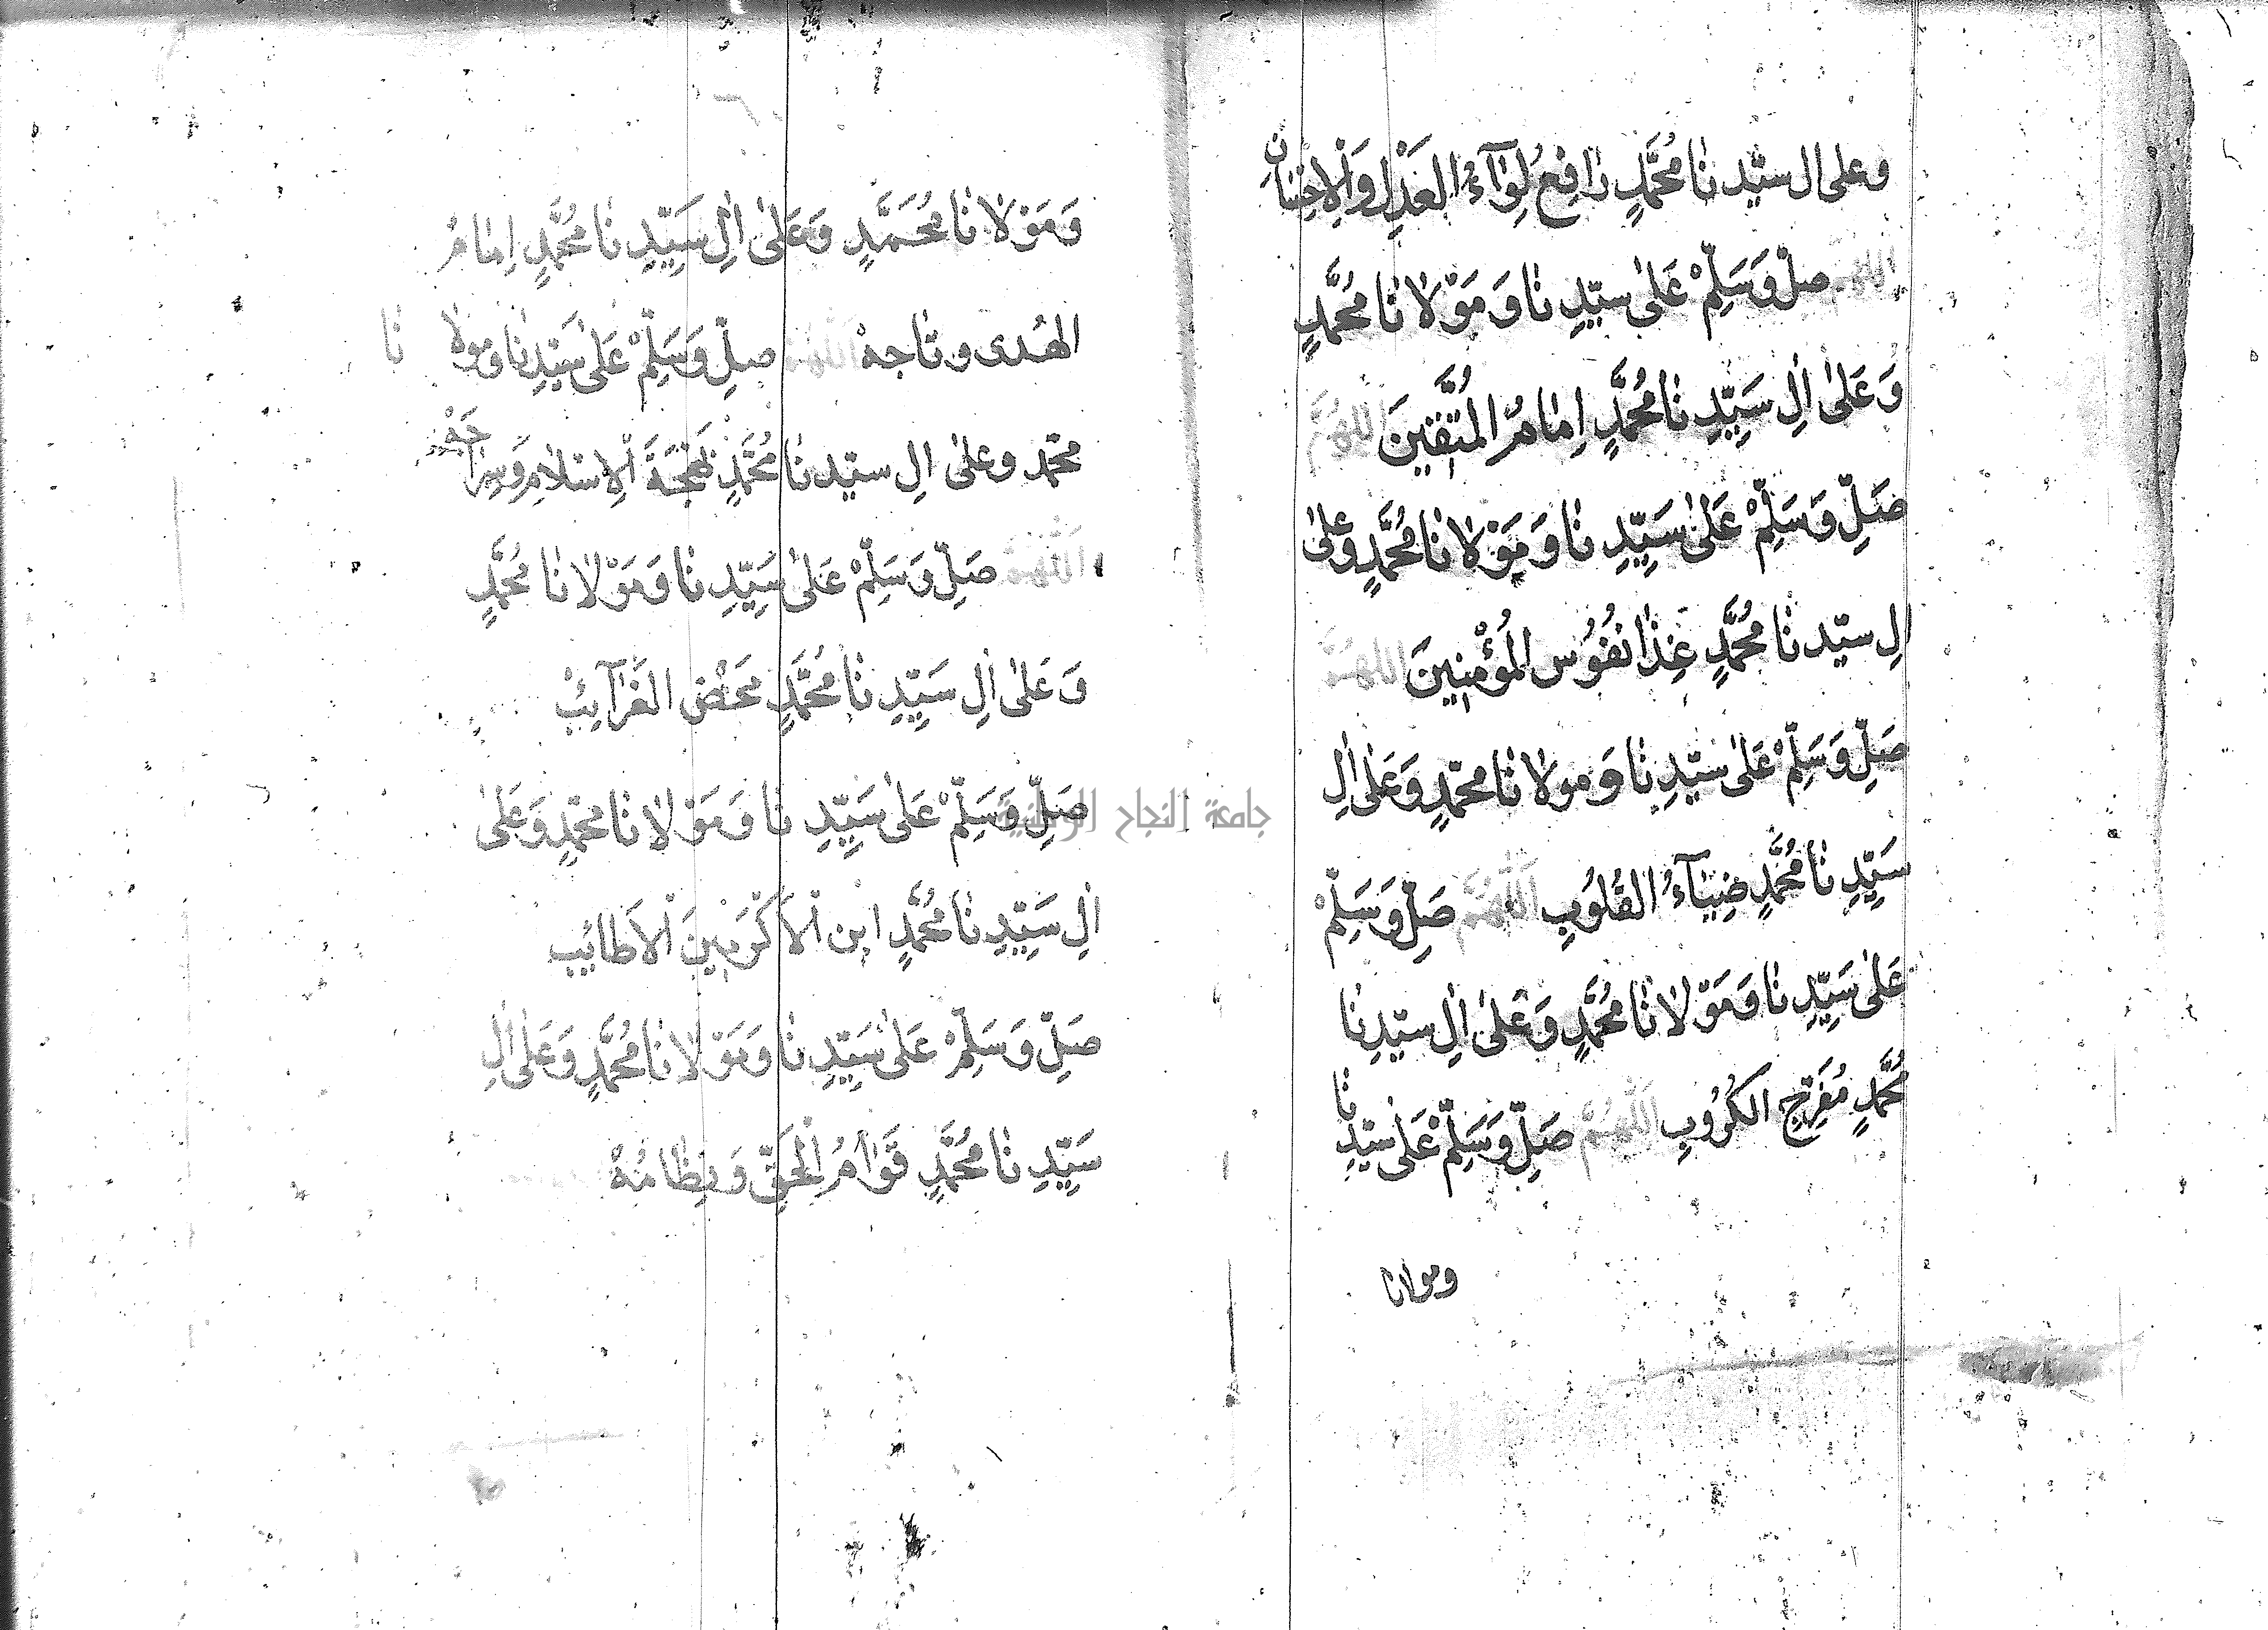 وعلى ال سيّدنا مُحمَّدٍ رَافِعُ لِوَآءُ العَدْلِ وَالإِحْسَانِ
اللهم صلّ وَسَلِّمْ عَلىٰ سيّدِنا وَمَوْلَانا مُحمَّدٍ
وَعَلىٰ اٰلِ سَيِّدِنا مُحمَّدٍ اِمَامُ المُتَّقِينَ اللّٰهُمَّ
صَلِّ وَسَلِّمْ عَلىٰ سَيِّدِنا وَمَوْلَانا مُحمَّدٍ وعلىٰ
اٰلِ سيّدنا مُحمَّدٍ غِذَا نُفُوُس المُؤْمِنِينَ اللهمَّ
صَلِّ وَسَلِّمْ عَلىٰ سيّدِنا وَمولانا محمّدٍ وَعَلىٰ اٰلِ
سَيِّدِنا مُحمَّدٍ ضِيَآءُ القُلُوُبِ اَللّٰهُمَّ صَلِّ وَسَلِّمْ
عَلىٰ سَيِّدِنا وَمَوْلَانا مُحمَّدٍ وَعَلىٰ اٰلِ سيّدِنا
مُحمَّدٍ مُفَرِّجِ الكُرُوُبِ اَللّٰهُمَّ صَلِّ وَسَلِّمْ عَلىٰ سيّدِنا
ومولانا
وَمَوْلَانا مُحَمَّدٍ وَعَلىٰ اٰلِ سَيِّدِنا مُحمَّدٍ اِمَامُ
الهُدى وتاجهْ اللّٰهمّ صلِّ وَسَلِّمْ عَلىٰ سَيّدِنا ومولانا
محمّد وعلىٰ اٰلِ سيّدنا مُحمَّدٍ بَهْجَةَ الاِسْلامِ وَسِرَاجَهْ
اَللّٰهُمَّ صَلِّ وَسَلِّمْ عَلىٰ سَيِّدِنا وَمَوْلَانا مُحمَّدٍ
وَعَلىٰ اٰلِ سَيِّدِنا مُحمَّدٍ مَحَضِ الغَرَآئِبْ
صَلِّ وَسَلِّمْ عَلىٰ سَيِّدِنا وَمَوْلَانا محمّدٍ وَعَلىٰ
اٰلِ سَيِّدِنا مُحمَّدٍ ابن اَلاَكْرَمِينَ اَلاَطائِب
صَلِّ وَسَلِّمْ عَلىٰ سَيِّدِنا وَمَوْلَانا مُحمَّدٍ وَعَلىٰ اٰلِ
سَيِّدِنا مُحمَّدٍ قَوَامُ اَلحَقِّ وَنِظَامُهْ
جامعة النجاح الوطنية